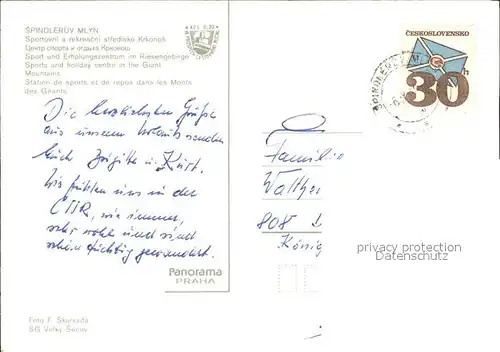 ŠPINDLERŮV MLÝN
Sportovní a rekreační středisko Krkonoš
Центр спорта и отдыха Крконош
Sport und Erholungszentrum im Riesengebirge
Sports and holiday centre in the Giant
Mountains
Station de sports et de repos dans les Monts
des Géants
Die herzlichsten Grüße
aus unserem Urlaub senden
Euch Brigitte u. Kurt.
Wir fühlen uns in der
ČSSR, wie immer,
sehr wohl und sind
schon tüchtig gewandert.
Foto F. Skanavida
S/S Velký Šenov
Panorama
PRAHA
ČESKOSLOVENSKO
30h
Familie
Walther
808
König
privacy protection
Datenschutz